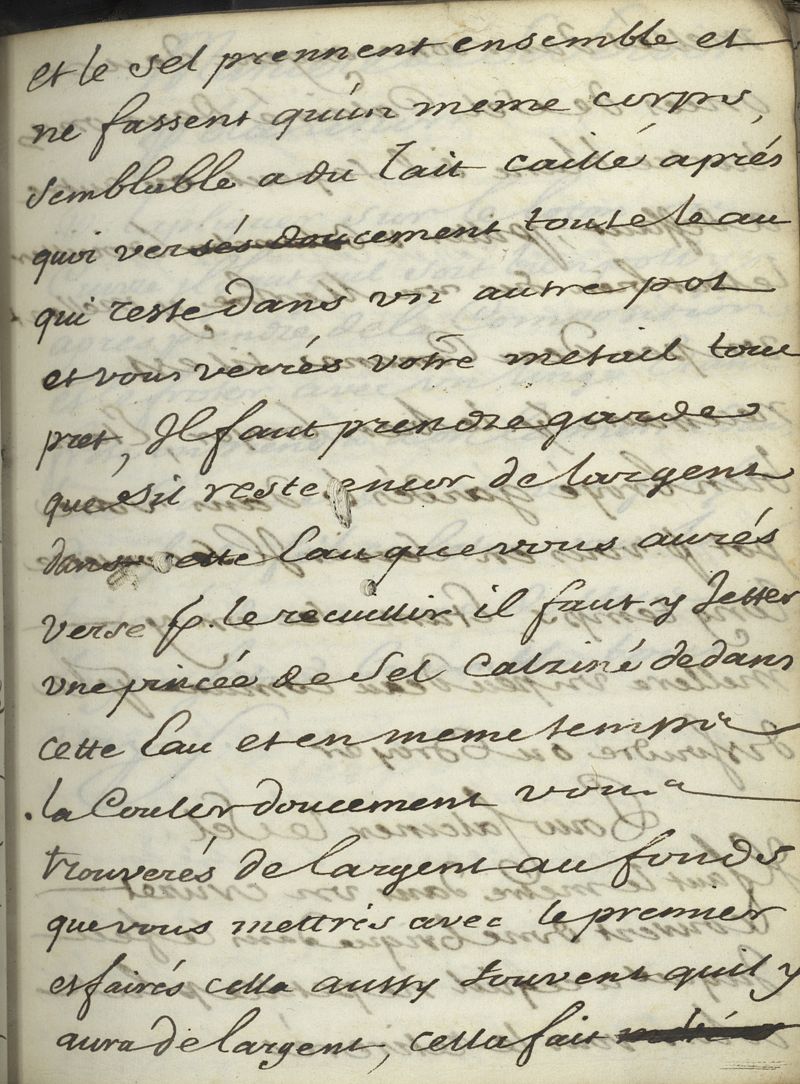 et le sel prennent ensemble et
ne fassent qu'un meme corps,
semblable a du lait caillé aprés
quoi versés doucement toute leau
qui reste dans vn autre pot
et vous verrés votre metail tout
pret, Il faut prendre garde
que sil reste encor de largent
dans cette Eau que vous aurés
verse p. le recuillir il faut y Jetter
vne pincée de Sel Calziné dedans
cette Eau et en meme temps
la Couler doucement vous
trouverés de largent au fonds
que vous mettrés avec le premier
et fairés cella aussy souvent quil y
aura de largent, cella fait